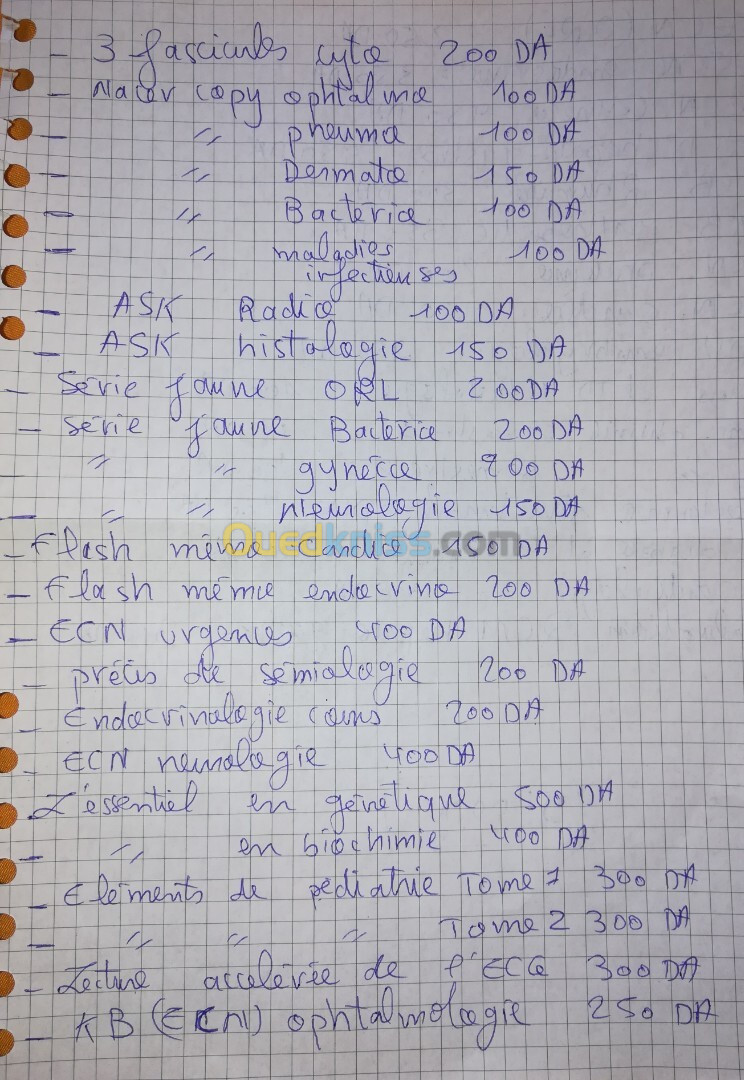 - 3 fascicules cyto 200 DA
- Nacer copy ophtalmo 100 DA
- " pneumo 100 DA
- " Dermato 150 DA
- " Bacterio 100 DA
- " maladies 100 DA
infectieuses
- ASK Radio 100 DA
- ASK histologie 150 DA
- Série jaune ORL 200 DA
- série jaune Bacterio 200 DA
- " " gynéco 200 DA
- " " neurologie 150 DA
- Flash mémo Cardio 150 DA
Ouedkniss.com
- Flash mémo endocrino 200 DA
- ECN urgences 400 DA
- précis de sémiologie 200 DA
- Endocrinologie cours 200 DA
- ECN neurologie 400 DA
- L'essentiel en génétique 500 DA
- " en biochimie 400 DA
- Eléments de pédiatrie Tome 1 300 DA
- " " " Tome 2 300 DA
- Lecture accelérée de l'ECG 300 DA
- KB (ECN) ophtalmologie 250 DA